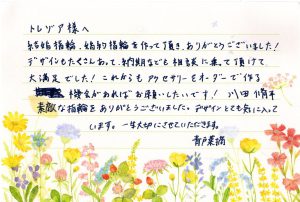 トレゾア様へ
結婚指輪、婚約指輪を作って頂き、ありがとうございました!
デザインもたくさんあって、納期なども相談に乗って頂けて
大満足でした!これからもアクセサリーをオーダーで作る
機会があればお願いしたいです! 川田
素敵な指輪をありがとうございました。デザインとても気に入って
います。一生大切にさせていただきます。